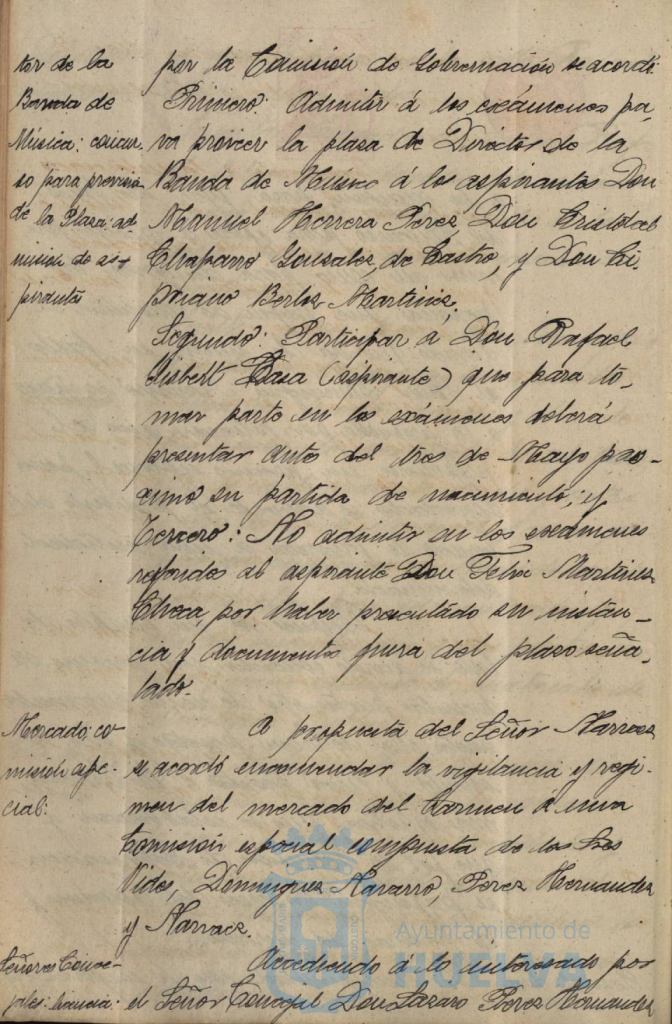 tor de la
Banda de
Música: concur-
so para provisión
de la Plaza: ad-
misión de as-
pirantes
por la Comisión de Gobernación se acordó
Primero: Admitir á los exámenes pa-
ra proveer la plaza de Director de la
Banda de Música á los aspirantes Don
Manuel Herrera Perez, Don Cristobal
Chaparro Gonzalez, de Castro, y Don Ci-
priano Martinez.
Segundo: Participar á Don Rafael
Gisbert (aspirante) que para to-
mar parte en los exámenes deberá
presentar antes del tres de Mayo pró-
ximo su partida de nacimiento; y
Tercero: No admitir en los exámenes
referidos al aspirante Don Felix Martinez
Checa, por haber presentado su instan-
cia y documentos fuera del plazo seña-
lado.
Mercado; co
misión espe-
cial:
A propuesta del Señor Narvaez
se acordó encomendar la vigilancia y regi-
men del mercado del Carmen á una
Comisión especial compuesta de los Sres
Vides, Dominguez Navarro, Perez Hernandez
y Narvaez.
Señores Conce-
jales: licencia:
Accediendo á lo interesado por
el Señor Concejal Don Lázaro Perez Hernandez
Ayuntamiento de
HUELVA